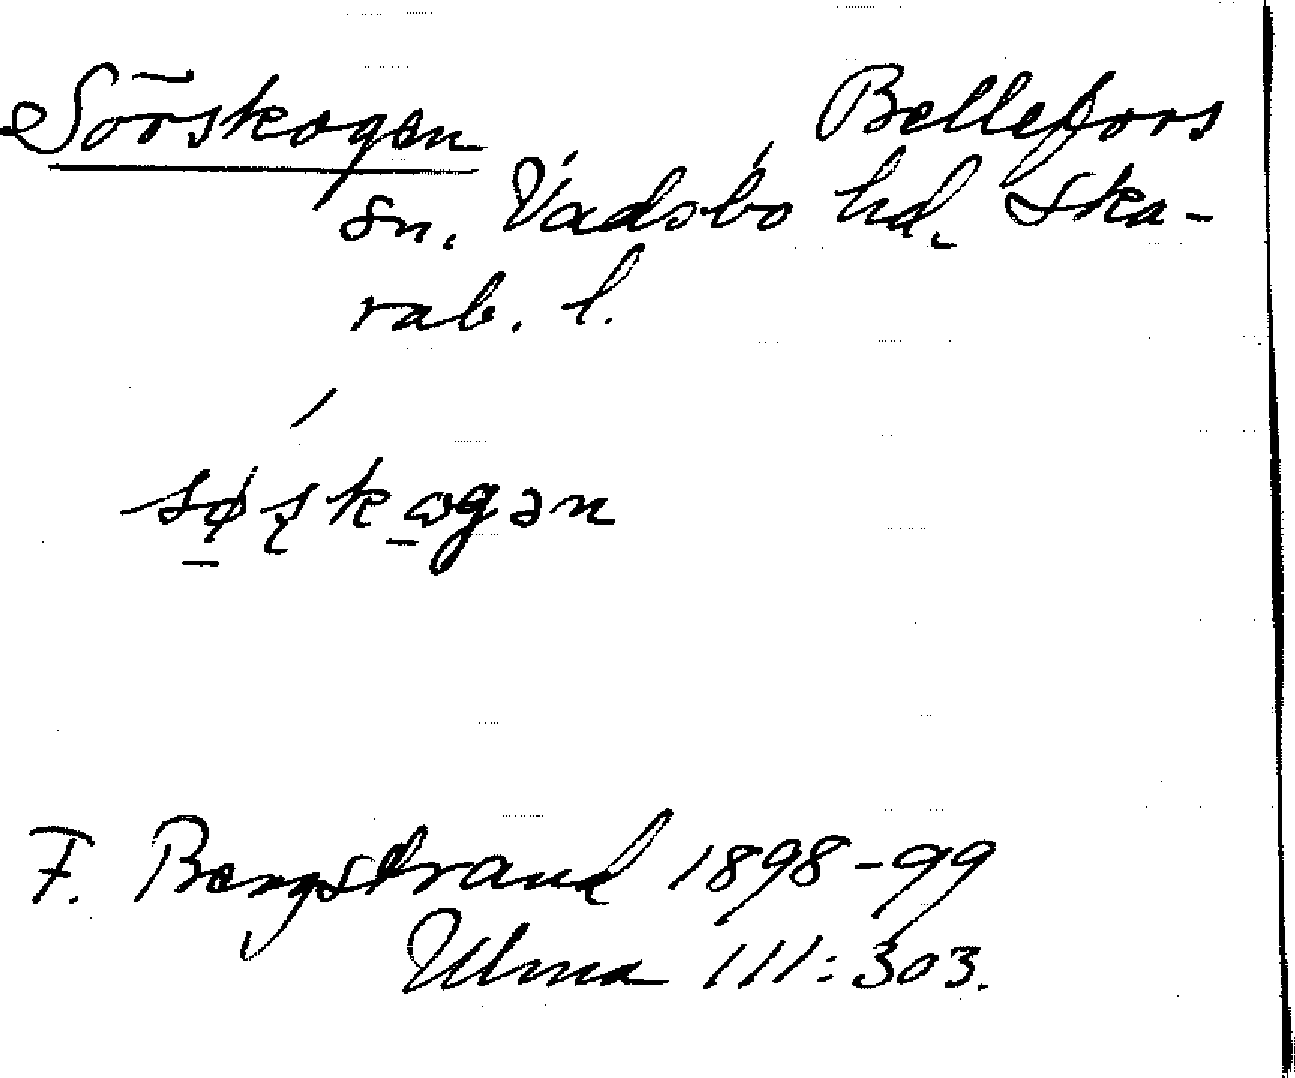 Sörskogen Bellefors
sn. Vadsbo hd. Ska-
rab. l.
sø̱ʂkɷ̱gən
F. Bergstrand 1898-99
Ulma 111:303.